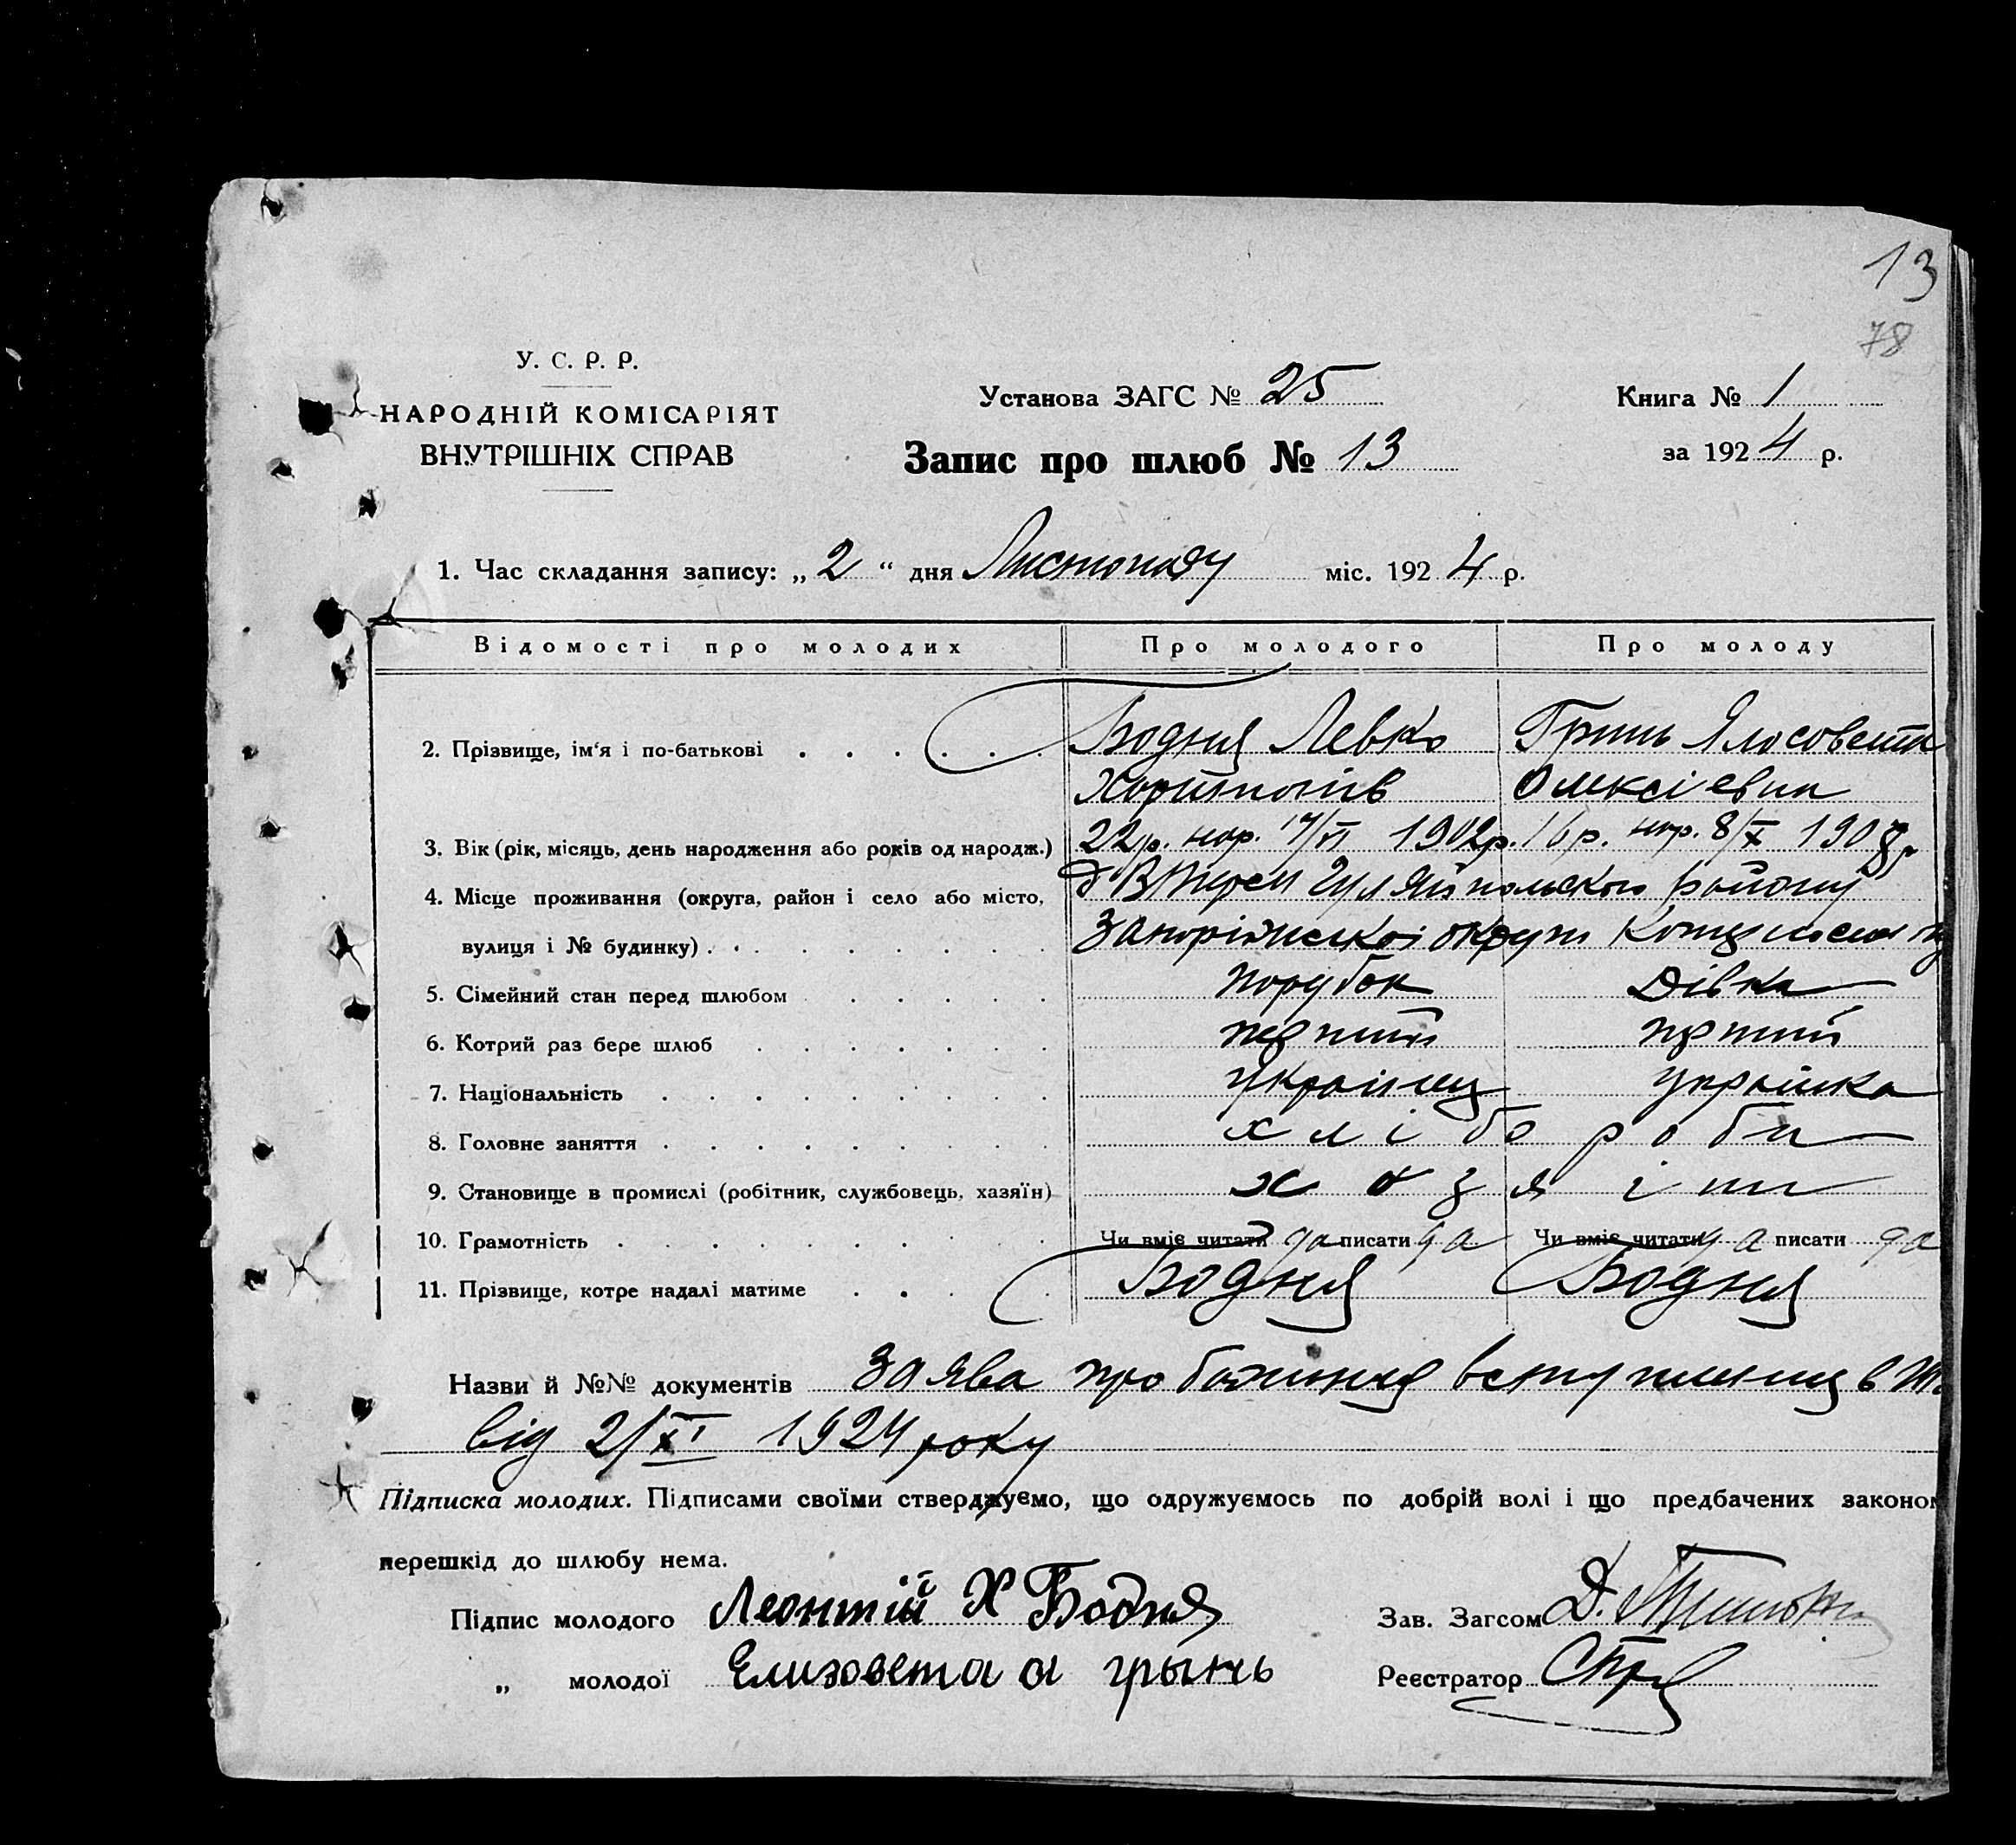 13
78
У. С. Р. Р.
НАРОДНІЙ КОМІСАРІЯТ
ВНУТРІШНІХ СПРАВ
Установа ЗАГС № 25
Книга № 1
Запис про шлюб № 13
за 1924 р.
1. Час складання запису: „2“ дня Листопаду міс. 1924 р.
Відомості про молодих Про молодого Про молоду
2. Прізвище, ім'я і по-батькові Бодня Левко Гринь Ялосовета
Харитонів Олексієвна
3. Вік (рік, місяць, день народження або років од народж.) 22р. нар. 17/VI 1902р. 16р. нар. 8/X 1908р
4. Місце проживання (округа, район і село або місто, Гуляйпольского району
вулиця і № будинку) Запоріжскоі округи
5. Сімейний стан перед шлюбом парубок Дівка
6. Котрий раз бере шлюб перший перший
7. Національність українец українка
8. Головне заняття хлібороби
9. Становище в промислі (робітник, службовець, хазяїн) хозяіни
10. Грамотність Чи вміє читати да писати да Чи вміє читати да писати да
11. Прізвище, котре надалі матиме Бодня Бодня
Назви й №№ документів Заява про бажання вступлення в
від 2/XI 1924 року
Підписка молодих. Підписами своїми стверджуємо, що одружуємось по добрій волі і що предбачених законом
перешкід до шлюбу нема.
Підпис молодого Леонтій Х Бодня Зав. Загсом Д.
„ молодої Елизовета а грынь Реєстратор